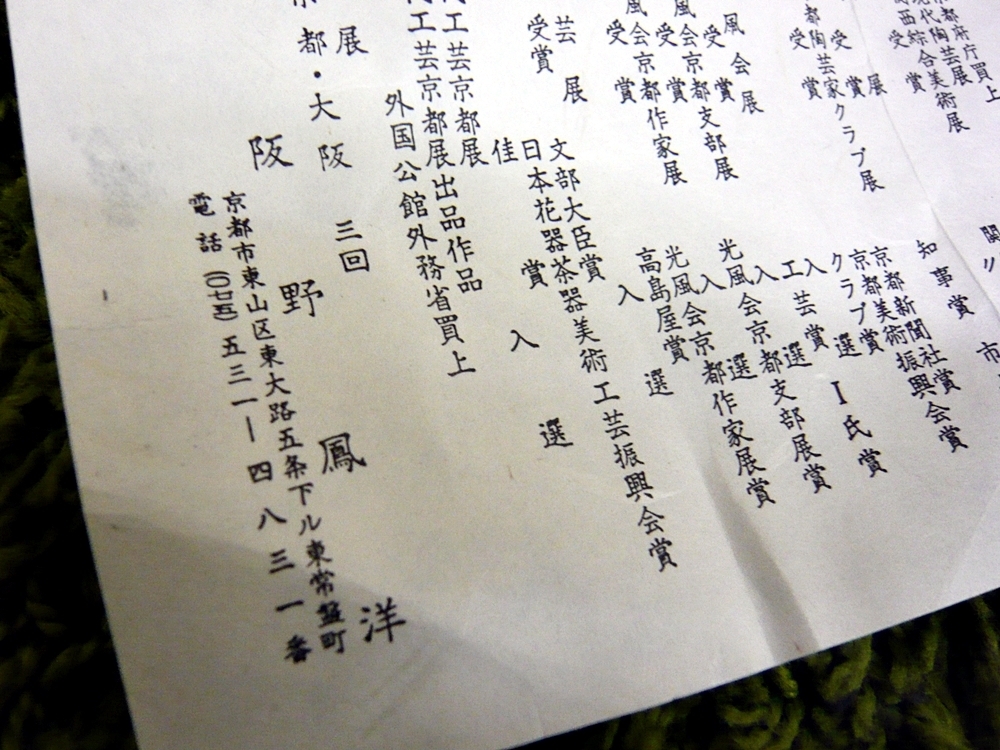 関リ 市
都府庁買上
代陶芸展
西綜合美術展
受賞
知事賞
京都新聞社賞
京都美術振興会賞
展
受賞
都陶芸家クラブ展
受賞
クラブ賞 I氏賞
入選
工芸賞
風会展
受賞
風会京都支部展
受賞
風会京都作家展
受賞
入選
光風会京都支部展賞
入選
光風会京都作家展賞
高島屋賞
入選
芸展
受賞
文部大臣賞
日本花器茶器美術工芸振興会賞
佳賞
入選
工芸京都展
工芸京都展出品作品
外国公館外務省買上
展 三回
都・大阪
阪野鳳洋
京都市東山区東大路五条下ル東常盤町
電話(〇七五)五三一ー四八三一番